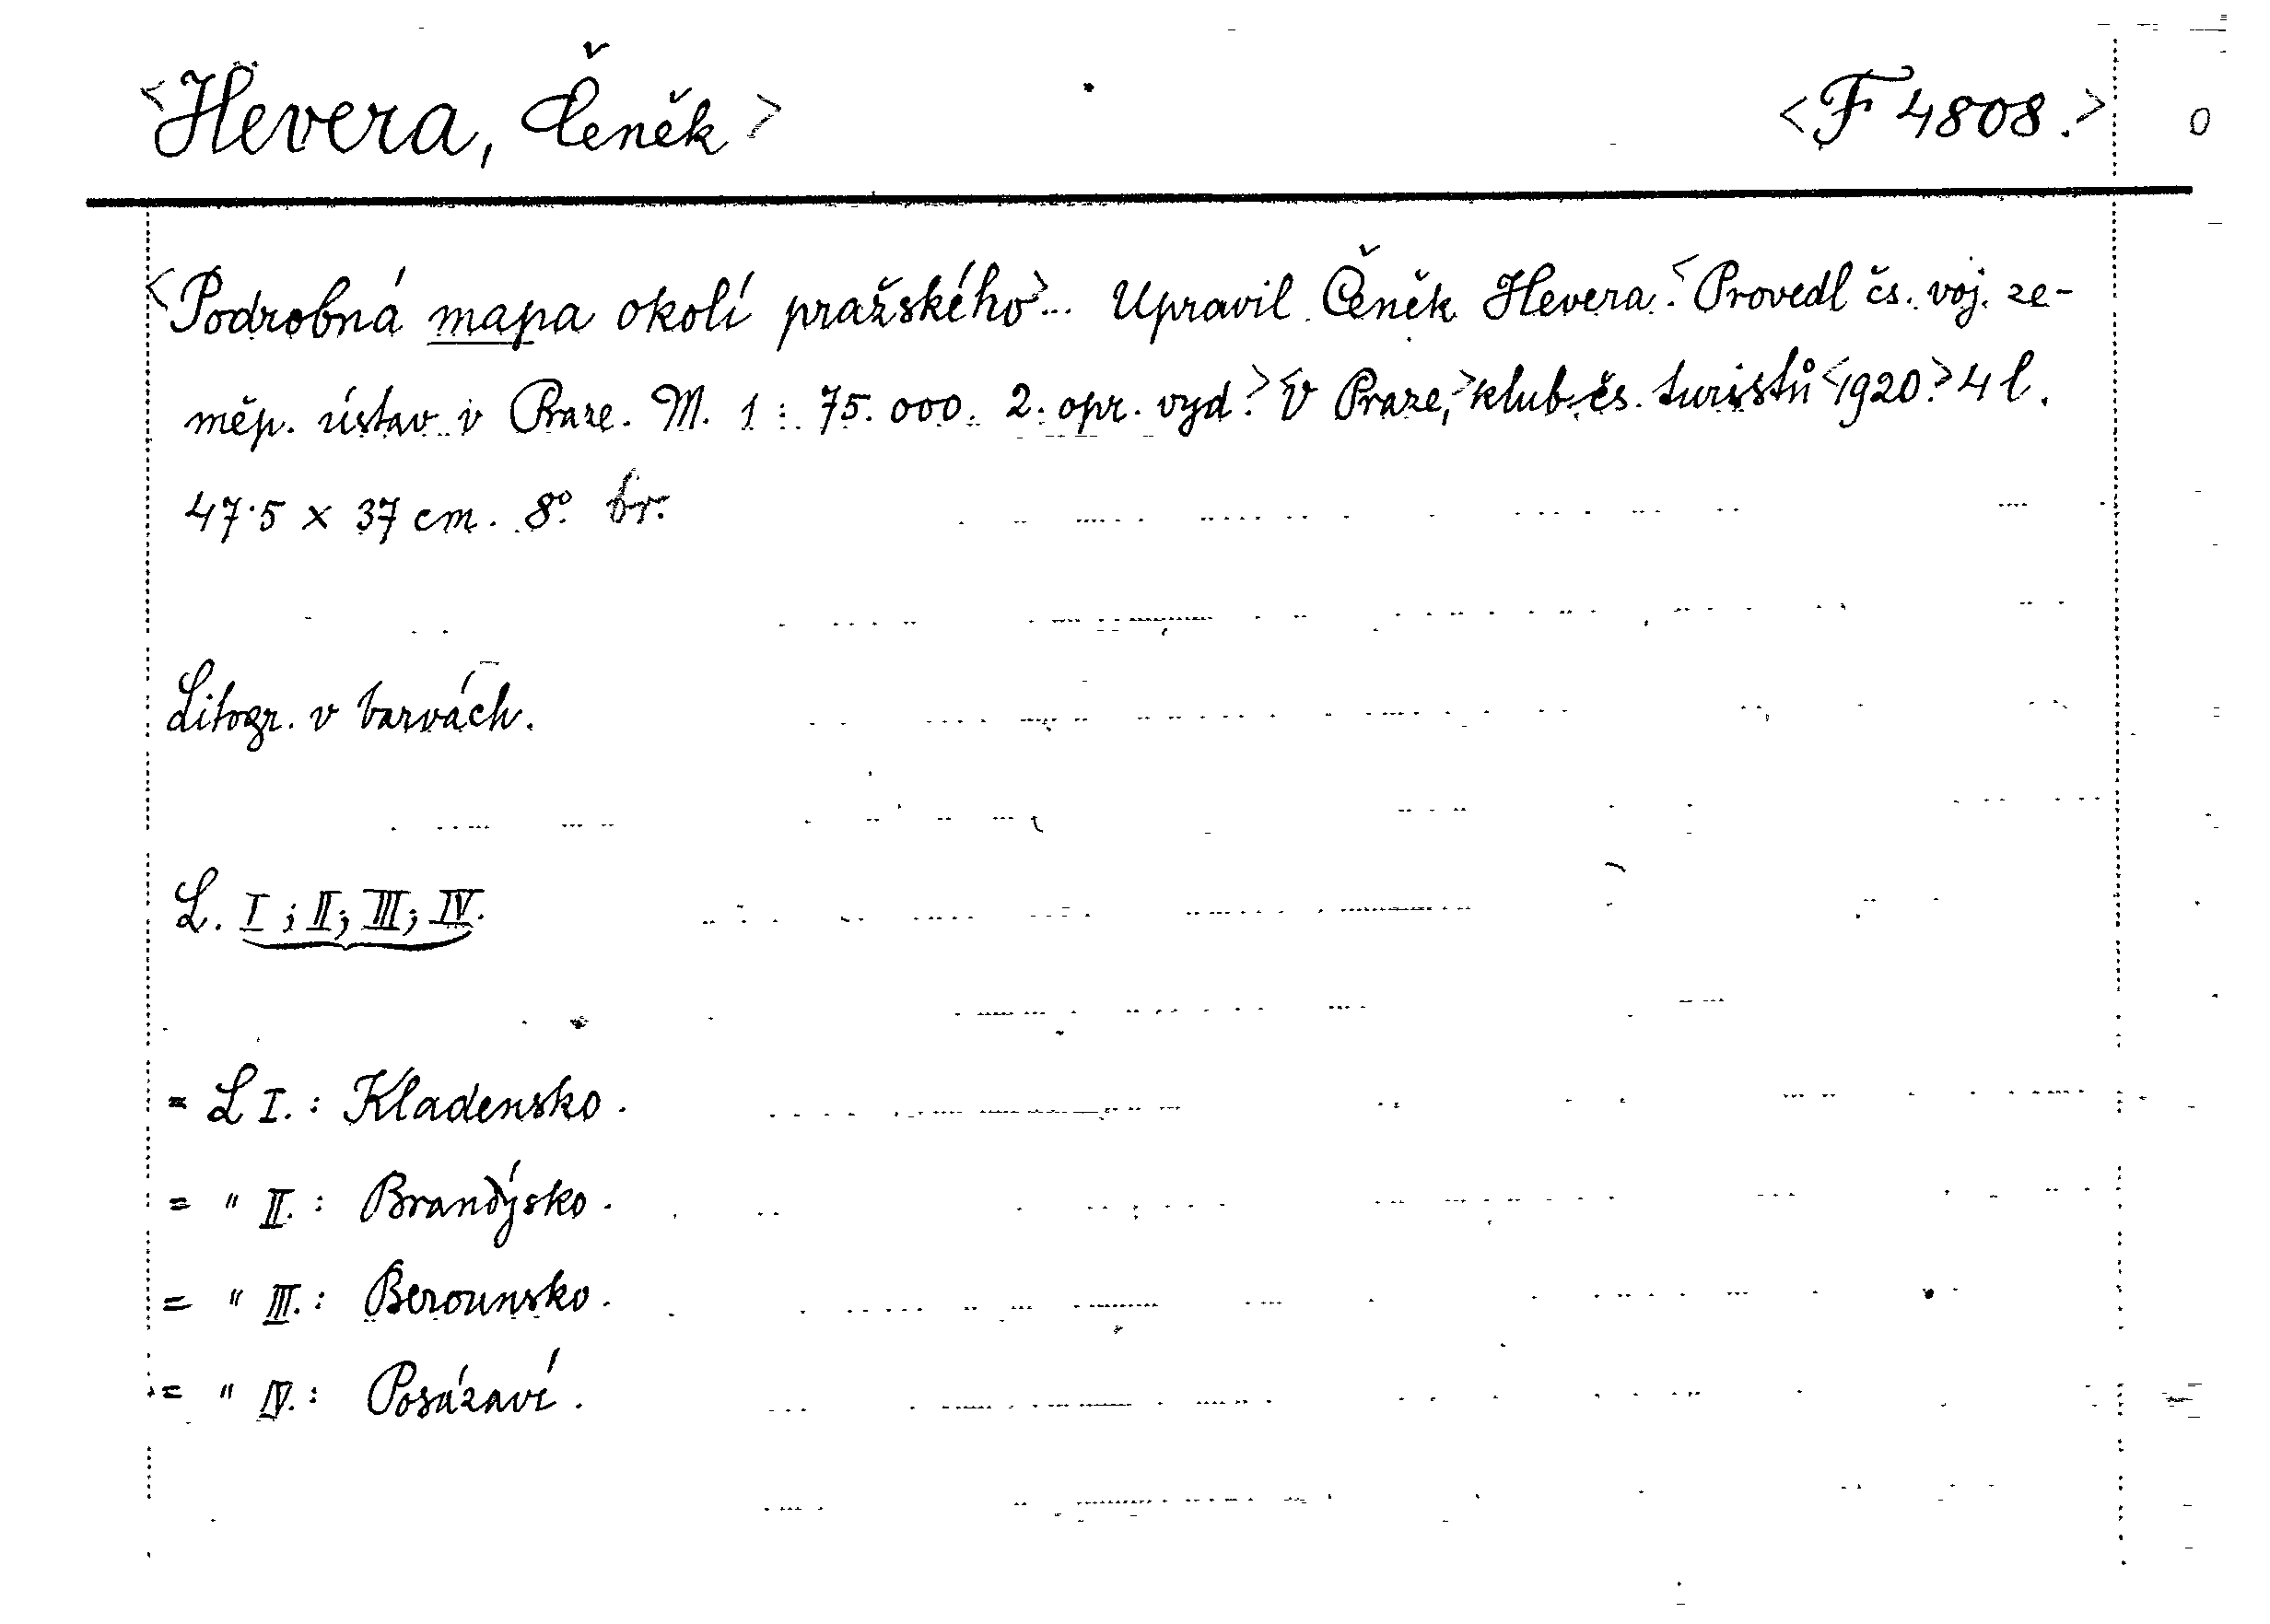 <Hevera, Čeněk> <F 4808.> 0
<Podrobná mapa okolí pražského>... Upravil Čeněk Hevera.<Provedl čs. voj. ze-
měp. ústav v Praze. M. 1 : 75.000. 2. opr. vyd.> <V Praze,> klub čs. turistů <1920.> 4 l.
47·5 x 37 cm. 8°. br.
Litogr. v barvách.
L. I ; II; III; IV.
= L I. : Kladensko.
= " II. : Brandýsko.
= " III. : Berounsko.
= " IV. : Posázaví.